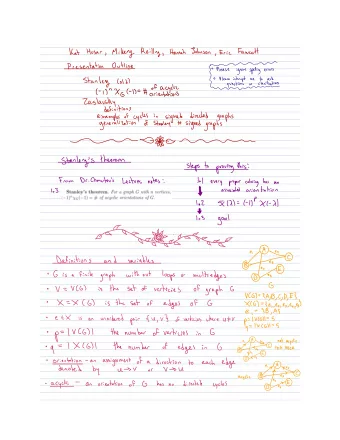 Kat Husar, Mikerz Reilly, Hannah Johnson, Eric Fawcett
Presentation Outline
- Please your policy
- always interrupt me to ask questions or clarification
Stanley (old)
(-1)^n χ_G (-1) = # of acyclic orientations
Zaslavsky
definitions
examples of cycles in signed directed graphs
generalization of Stanley to signed graphs
Stanley's theorem
Steps to proving this:
From Dr. Chmutov's Lecture notes:
1.3 Stanley's theorem. For a graph G with n vertices,
(-1)^n χ_G(-1) = # of acyclic orientations of G.
1.1 every proper coloring has an associated orientation
1.2 χ̄(λ) = (-1)^p χ(-λ)
1.3 goal
Definitions and variables
• G is a finite graph without loops or multiedges
• V = V(G) is the set of vertices of graph G
• X = X(G) is the set of edges of G
• e ∈ X is an unordered pair {u,v} of vertices where u≠v
• p = |V(G)| the number of vertices in G
• q = |X(G)| the number of edges in G
• orientation - an assignment of a direction to each edge
denoted by u→v or v→u
• acyclic - an orientation of G has no directed cycles
G
V(G) = {A,B,C,D,E}
p = |V(G)| = 5
not acyclic
acyclic